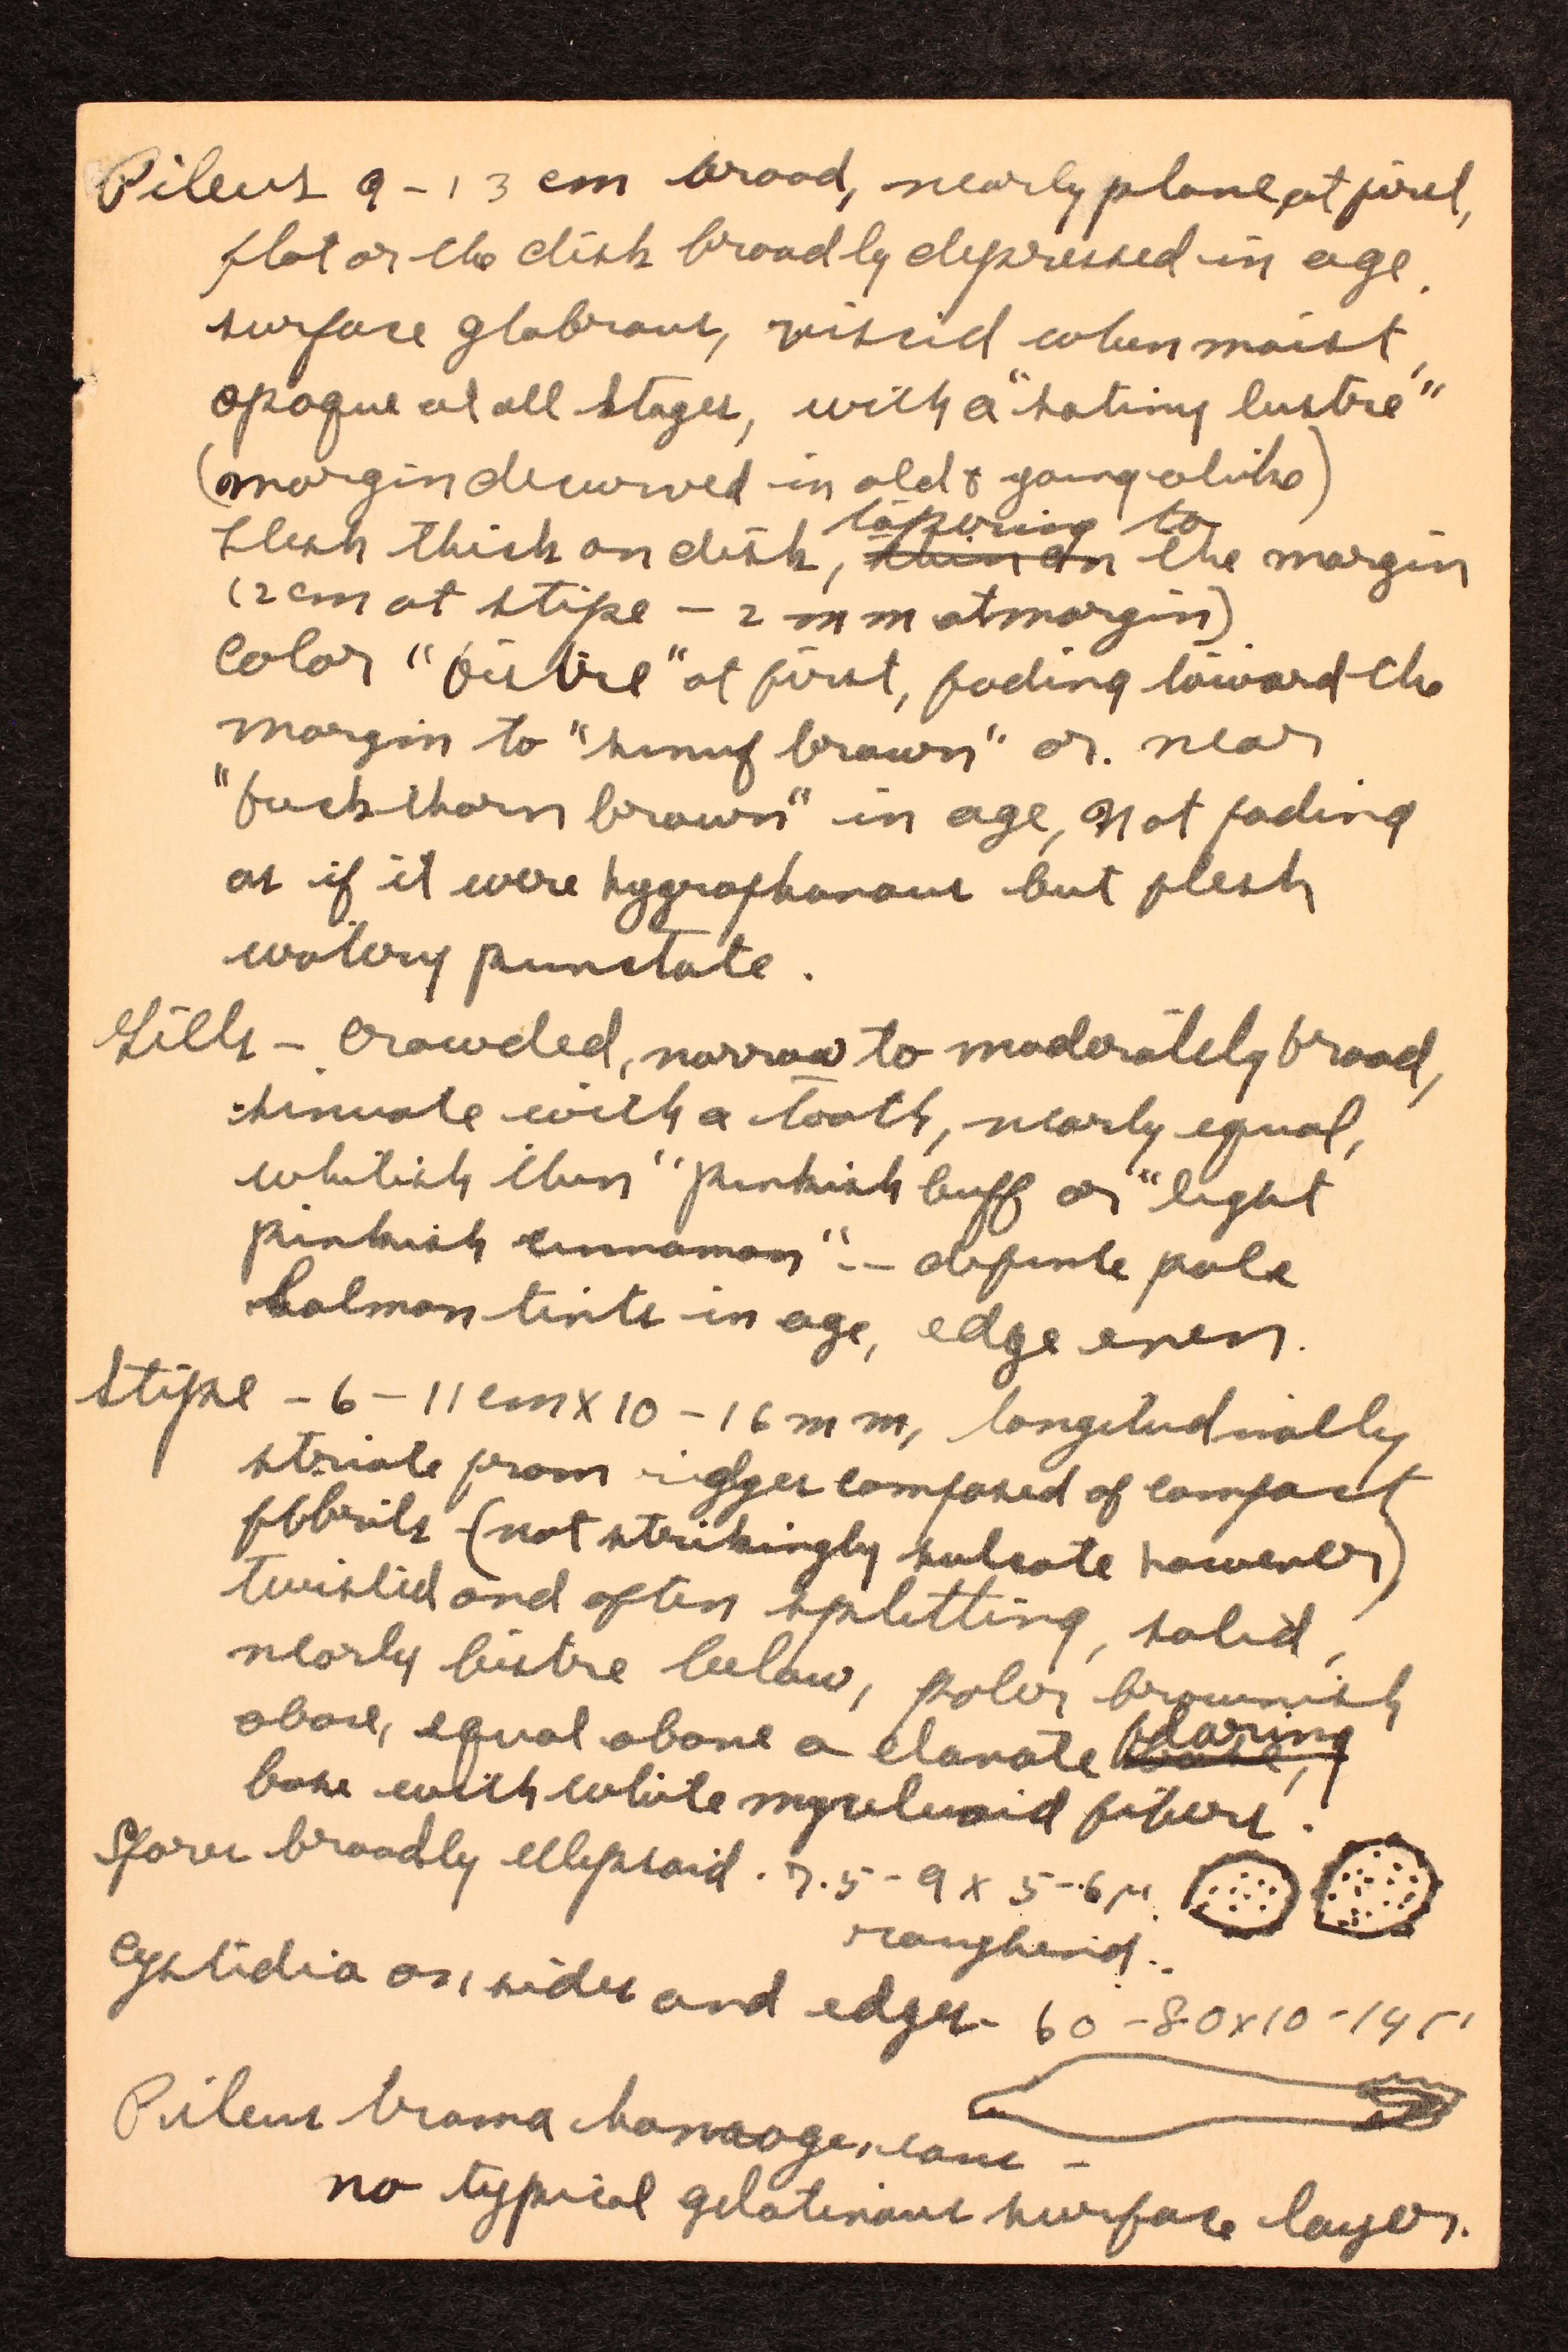 Pileus 9-13 cm broad, nearly plane at first,
flat or the disk broadly depressed in age,
surface glabrous, viscid when moist,
opaque at all stages, with a "satiny lustre"
(margin decurved in old & young alike)
tapering to
Flesh thick on disk, thin on the margin
(2 cm at stipe - 2 mm at margin)
Color "bistre" at first, fading toward the
margin to "snuf brown" or near
"buckthorn brown" in age, not fading
as if it were hygrophanous but flesh
watery punctate.
Gills - crowded, narrow to moderately broad,
sinuate with a tooth, nearly equal,
whitish then "pinkish buff or "light
pinkish cinnamon" - definite pale
salmon tints in age, edge even.
Stipe - 6-11 cm x 10-16 mm, longitudinally
striate from ridges composed of compact
fibbrils (not strikingly sulcate however)
twisted and often splitting, solid,
nearly bistre below, paler brownish
above, equal above a clavate base, flaring
base with white myceluoid fibers.
Spores broadly ellipsoid. 7.5-9 x 5-6 µ.
roughenid.
Cystidia on sides and edges - 60-80 x 10-14 µ
Pileus trama homoogeneous -
no typical gelatinous surface layer.